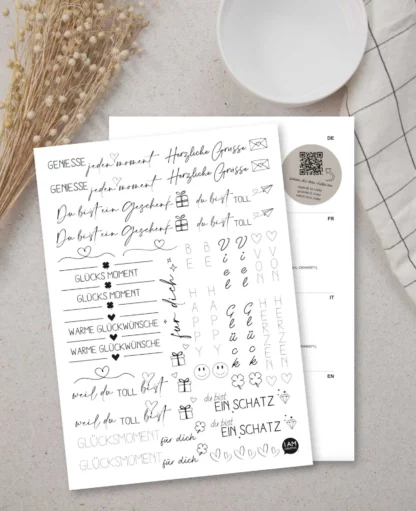 GENIESSE jeden moment Herzliche Grüsse
GENIESSE jeden moment Herzliche Grüsse
Du bist ein Geschenk du bist TOLL
Du bist ein Geschenk du bist TOLL
GLÜCKS MOMENT
GLÜCKS MOMENT
WARME GLÜCKWÜNSCHE
WARME GLÜCKWÜNSCHE
für dich
BE HAPPY
BE HAPPY
Viel Glück
VON HERZEN
weil du TOLL bist
weil du TOLL bist
du bist
EIN SCHATZ
du bist
EIN SCHATZ
GLÜCKSMOMENT für dich
GLÜCKSMOMENT für dich
I AM
DE
FR
IT
EN